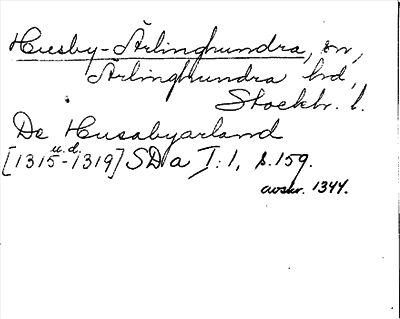 Husby-Ärlinghundra, sn,
Ärlinghundra hd,
Stockh. l.
De Husabyarland
[1315 u.d. -1319] SD a I:1, s. 159.
avskr. 1344.